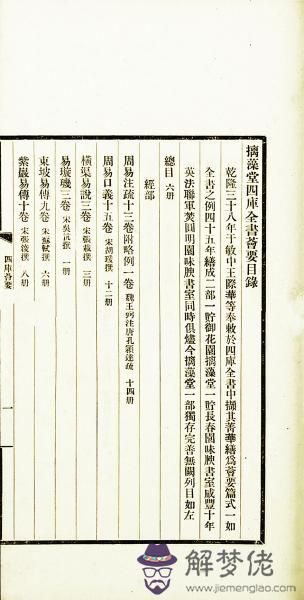 摛藻堂四庫全書薈要目錄
乾隆三十八年于敏中王際華等奉敕於四庫全書中擷其菁華繕為薈要篇式一如
全書之例四十五年繕成二部一貯御花園摛藻堂一貯長春園味腴書室咸豐十年
英法聯軍焚圓明園味腴書室同時俱燼今摛藻堂一部獨存完善無闕列目如左
總目 六册
經部
周易注疏十三卷附略例一卷 魏王弼注唐孔穎達疏 十四册
周易口義十五卷 宋胡瑗撰 十二册
橫渠易說三卷 宋張載撰 三册
易璇璣三卷 宋吳沆撰 一册
東坡易傳九卷 宋蘇軾撰 六册
紫巖易傳十卷 宋張浚撰 八册
四庫薈要
一
解梦佬
www.jiemenglao.com